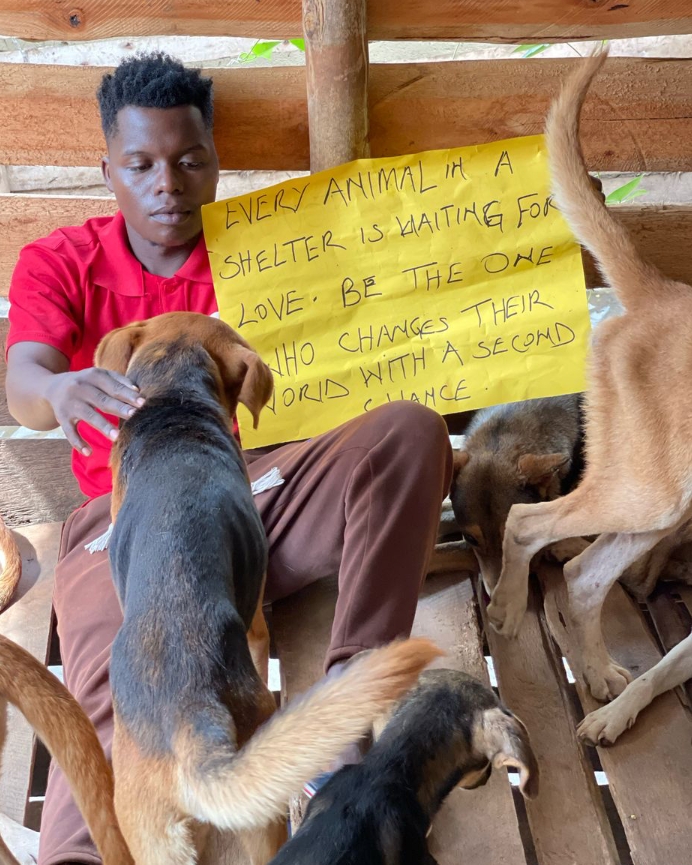 EVERY ANIMAL IN A
SHELTER IS WAITING FOR
LOVE. BE THE ONE
WHO CHANGES THEIR
WORLD WITH A SECOND
CHANCE.